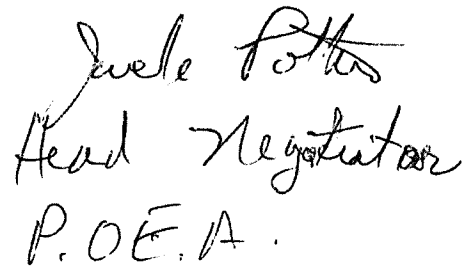 Potter
Head Negotiator
P.O.E.A.